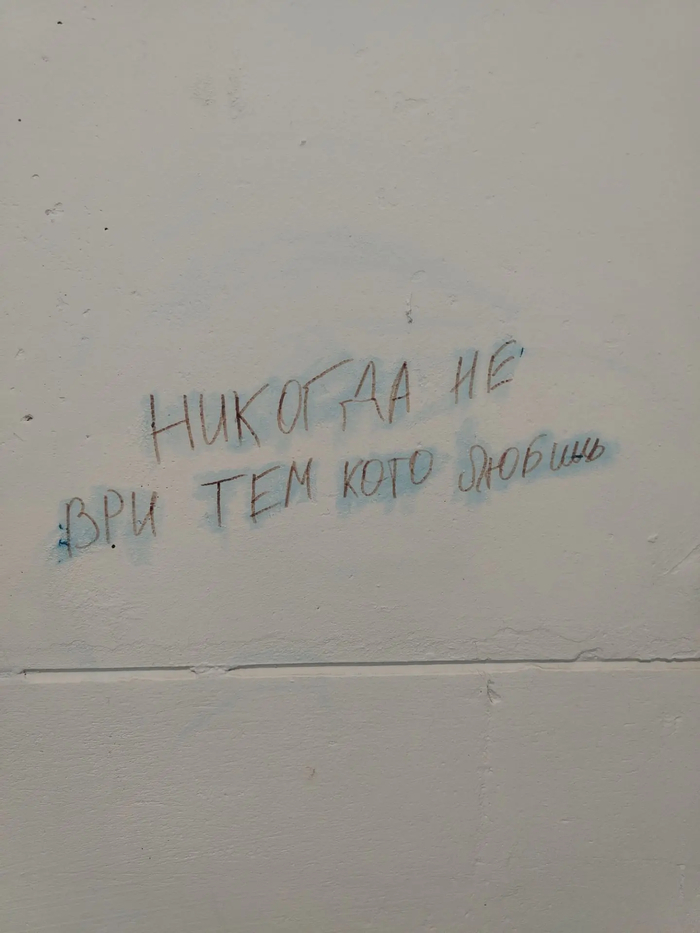 НИКОГДА НЕ
ВРИ ТЕМ КОГО ЛЮБИШЬ